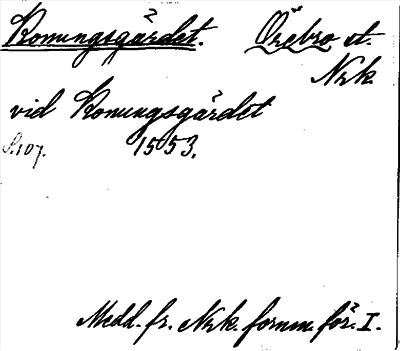 Konungsgärdet. Örebro st.
Nrk.
vid Konungsgärdet
S.107. 1553.
Medd. fr. Nrk. fornm. för. I.